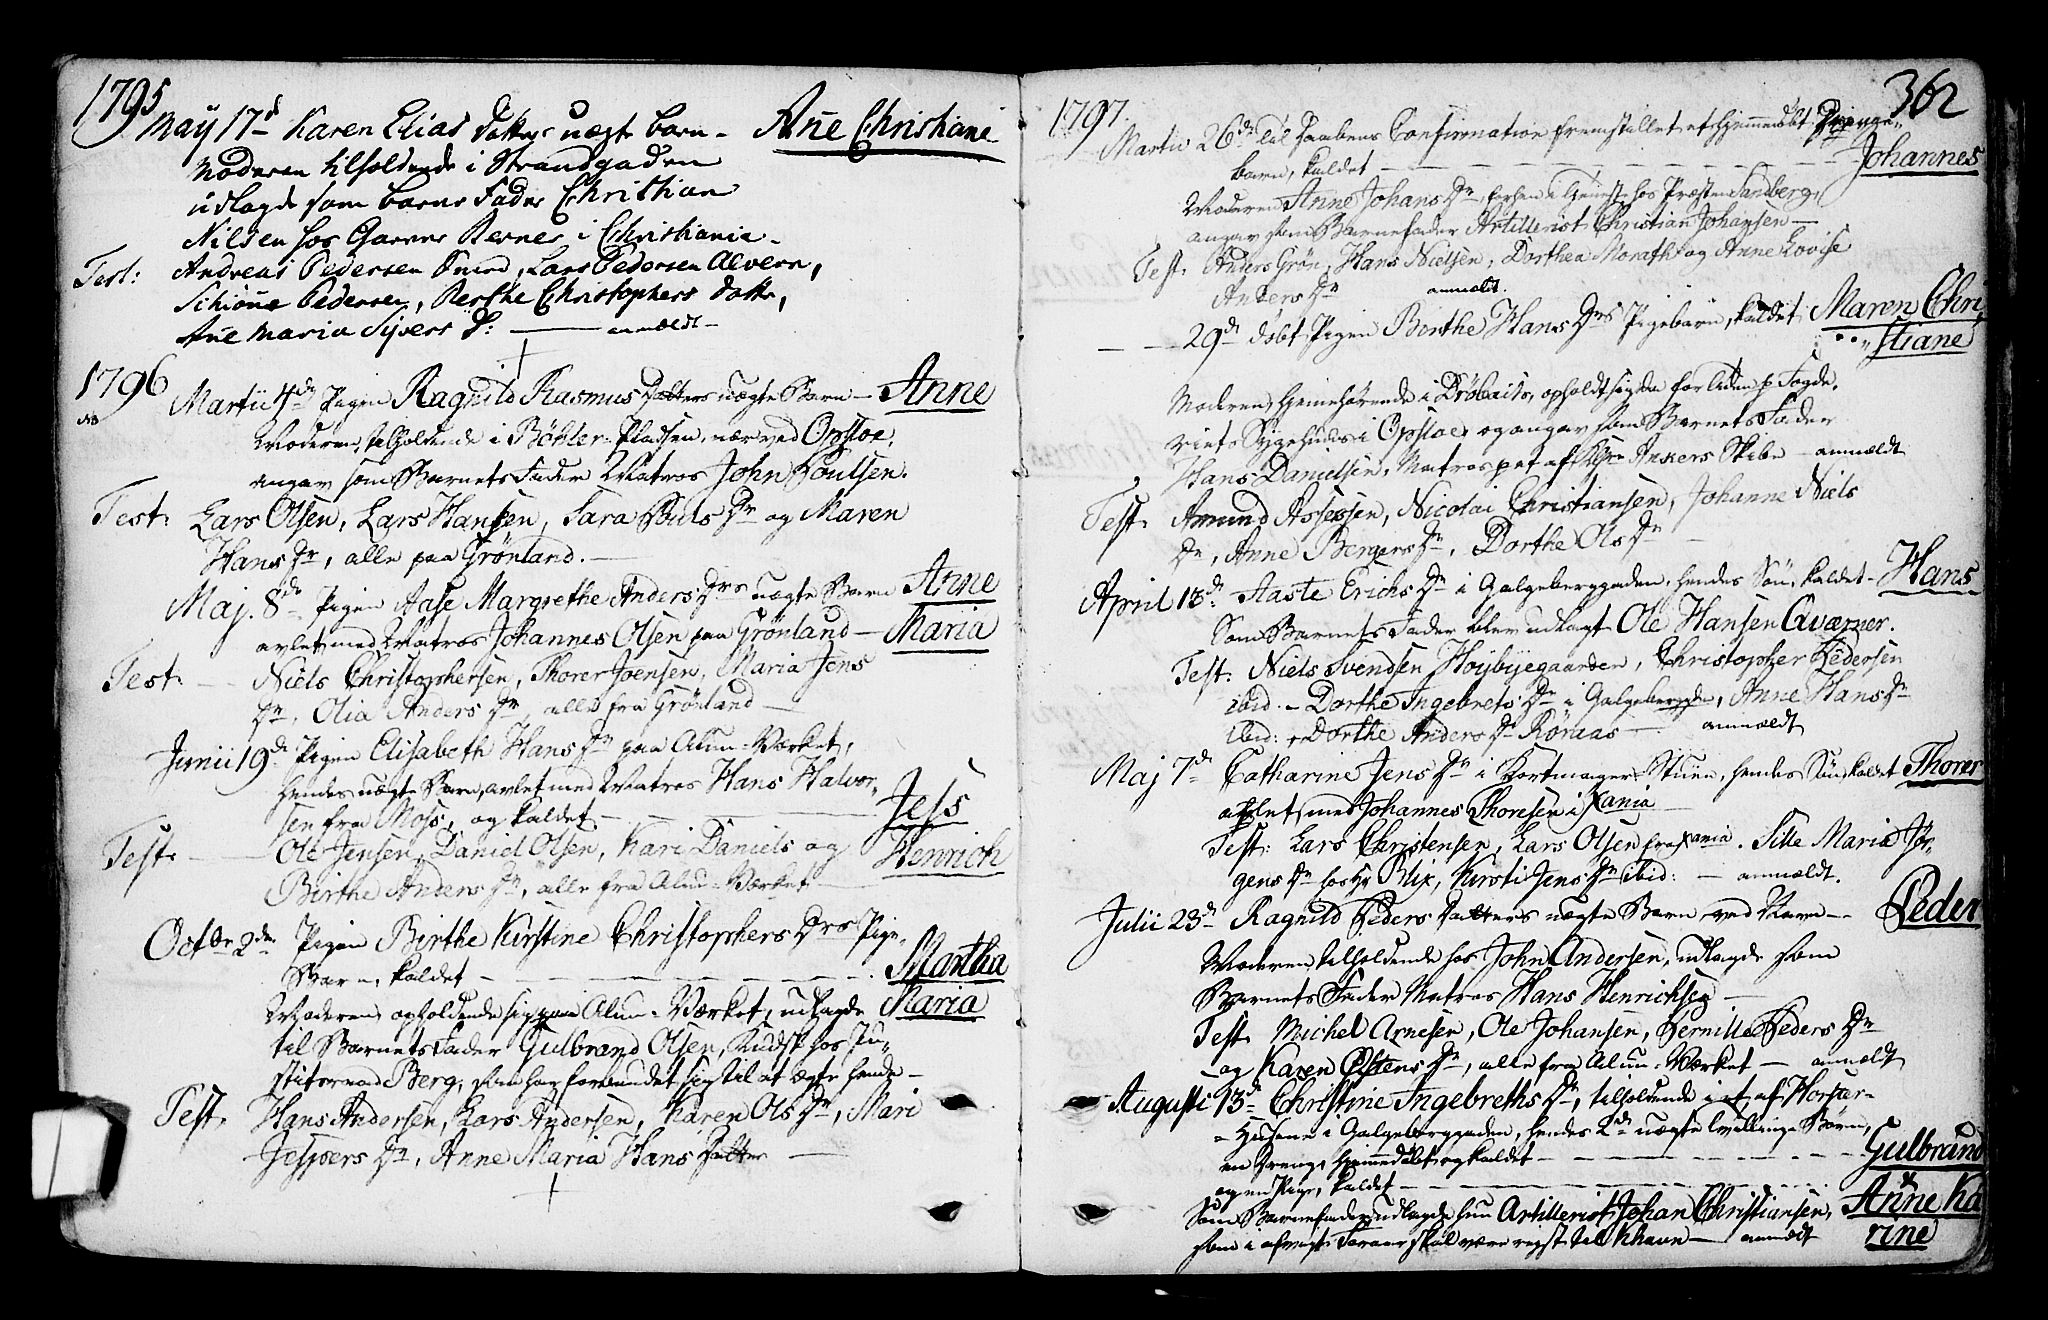 1795
May 17d Karen Elias datters uægte barn - Añe Christiane
Moderen tilholdende i Strandgaden
udlagde som barns Fader Christian
Nilsen hos Garver Berner i Christiania -
Test: Andreas Pedersen Smed, Lars Pedersen Alvern,
Schiöñe Pedersen, Berthe Christophers datter,
Añe Maria Sivers D: — anmældt -
1796
NB
Martii 4de Pigen Ragnild Rasmus Datters uægte Barn - Anne
Moderen, tilholdende i Böhler-Pladsen, nær ved Opsloe,
angav som Barnets Fader Matros John Poulsen.
Test: Lars Olsen, Lars Hansen, Sara Pouls Dr og Maren
Hans Dr, alle paa Grönland. -
Maj. 8de Pigen Aase Margrethe Anders Drs uægte Barn Anne
avlet med Matros Johannes Olsen paa Grönland - Maria
Test. - Niels Christophersen, Thorer Joensen, Maria Jens
Dr, Olia Anders Dr, alle fra Grönland -
Junii 19de Pigen Elisabeth Hans Dr paa Alun-Værket,
hendes uægte Barn, avlet med Matros Hans Halvor-
sen fra Moss, og kaldet - Jess
Test. - Ole Jensen, Daniel Olsen, Kari Daniels og Henrich
Birthe Anders Dr, alle fra Alun-Værket -
Octbr 2den Pigen Birthe Kirstine Christophers Drs Pige-
Barn, kaldet - Martha
Moderen, opholdende sig paa Alun-Værket, udlagde Maria
til Barnets Fader Gulbrand Olsen, Kudsk hos Ju-
stitsraad Berg, som har forbundet sig til at ægte hende -
Test. Hans Andersen, Lars Andersen, Karen Ols Dr, Mari
Jespers Dr, Anne Maria Hans Datter -
362
1797.
Martii 26de til Daabens Confirmation fremstillet et hjemmedöbt Drenge-
barn, kaldet - Johannes
Moderen Anne Johans Dr, forhen i Tjeneste hos Præsten Sandberg,
angav som Barnefader Artillerist Christian Johansen -
Test. Anders Grön, Hans Nielsen, Dorthea Morath og Anne Lovise
Anders Dr anmældt.
- - 29de döbt Pigen Birthe Hans Drs Pigebarn, kaldet Maren Chri-
stiane
Moderen, hjemehörende i Dröbak, opholdt sig da forleden
Sygehuus i Opsloe, og angav som Barnets Fader
Hans Danielsen, Matros paa et af Ankers Skibe - anmældt
Test. Amund Assessen, Nicolai Christiansen, Johanne Niels
Dr, Anne Bergers Dr, Dorthe Ols Dr
April 13de Aaste Erichs Dr i Galgeberggaden, hendes Sön, kaldet - Hans
Som Barnets Fader blev udlagt Ole Hansen Qværner.
Test. Niels Svendsen Höybyegaarden, Christopher Pedersen
ibid. - Dorthe Ingebrets Dr i Galgeberggden, Anne Hans Dr
ibid: Dorthe Anders Dr Rönaas - anmældt
Maj 7de Catharine Jens Dr i Kortmager-Stuen, hendes Sön kaldet Thorer
avlet med Johannes Thoresen i Xania -
Test: Lars Christensen, Lars Olsen fra Xania. Sille Maria Jör-
gens Dr hos Hr Blix, Kirsti Jens Dr ibid: - anmældt.
Julii 23de Ragnild Peders Datters uægte Barn, ved Navn - Peder
Moderen, tilholdende hos John Andersen, udlagde som
Barnets Fader Matros Hans Henrichsen -
Test. Michel Arnesen, Ole Johansen, Pernille Peders Dr
og Karen Östens Dr, alle fra Alun-Værket - anmældt
Augusti 13de Christine Ingebreths Dr, tilholdende i et af
Husene i Galgeberggaden, hendes 2de uægte tvillinge Börn,
en Dreng, hjemmedöbt og kaldet - Gulbrand
og en Pige, kaldet - Anne Ka
Som Barnefader udlagde hun Artillerist Johan Christiansen, rine
som i afvigte Foraar skal være rejst til Khavn - anmældt